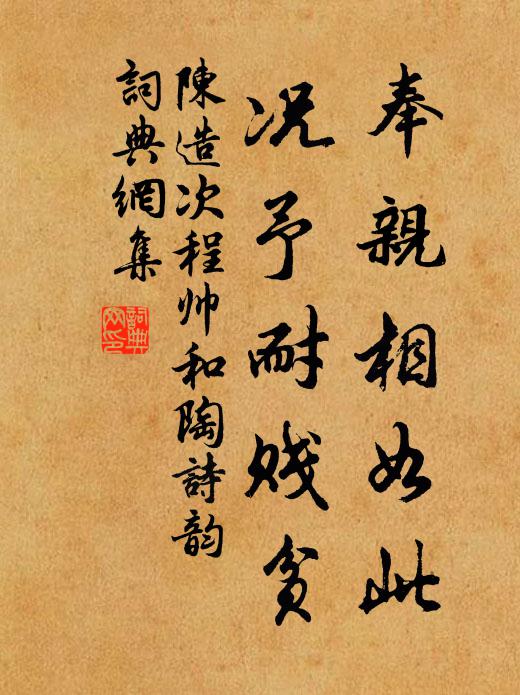 奉親相如此
況予耐賤貧
陳造次程帅和陶詩韵
詞典網集
詞典网印